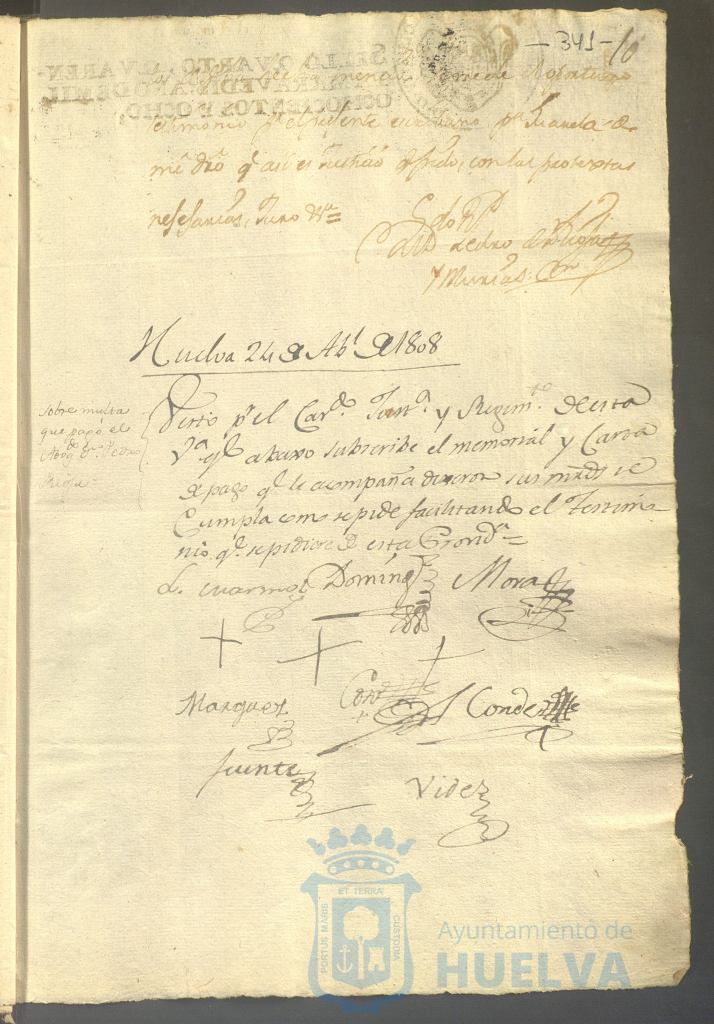 - 341 - 10
SELLO QVARTO, QVAREN-
TA MARAVEDIS, AÑO DE MIL
OCHOCIENTOS Y OCHO,
testimonio pr. el presente escribano pa. Guarda de
mi dro. q. asi es Justicia q. pido, con las protextas
nesesarias, Juro Va =
Ldo. Dn. Pedro de Rioja
y Murias
Huelva 24 de Abl. de 1808
sobre multa
que pagó el
Abogdo. Dn. Pedro
Rioja =
Visto pr. el Cavdo. Justa. y Regimto. de esta
Va. qe. abaxo subscribe el memorial y Carta
de pago qe. le acompaña dixeron sus mrds. se
Cumpla como se pide facilitando el Testimo-
nio qe. se pidiere de esta Provida. =
Domingz Mora
Marquez Conde
Fuente Videz
ET TERRA
PORTUS MARIS
CUSTODIA
Ayuntamiento de
HUELVA